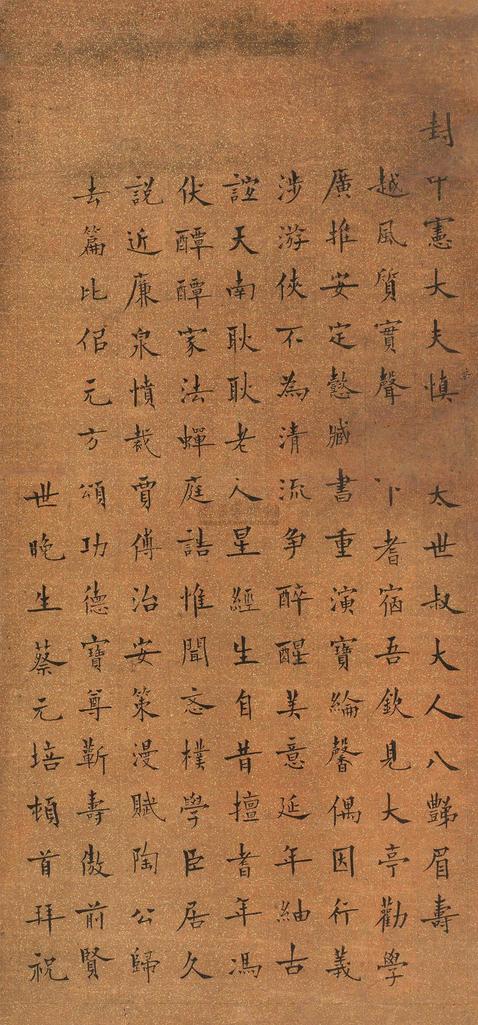 封中憲大夫慎 太世叔大人八豔眉壽
越風質實聲 下耆宿吾欽見大亭勸學
廣推安定懿臧書重演寶綸馨偶因行義
涉游俠不為清流爭醉醒美意延年紬古
誼天南耿耿老人星經生自昔擅耆年馮
伏醰醰家法蟬庭誥惟聞忞樸學臣居久
說近廉泉憤裁賈傅治安策漫賦陶公歸
去篇比侶元方頌功德寶尊蘄壽傲前賢
世晚生蔡元培頓首拜祝